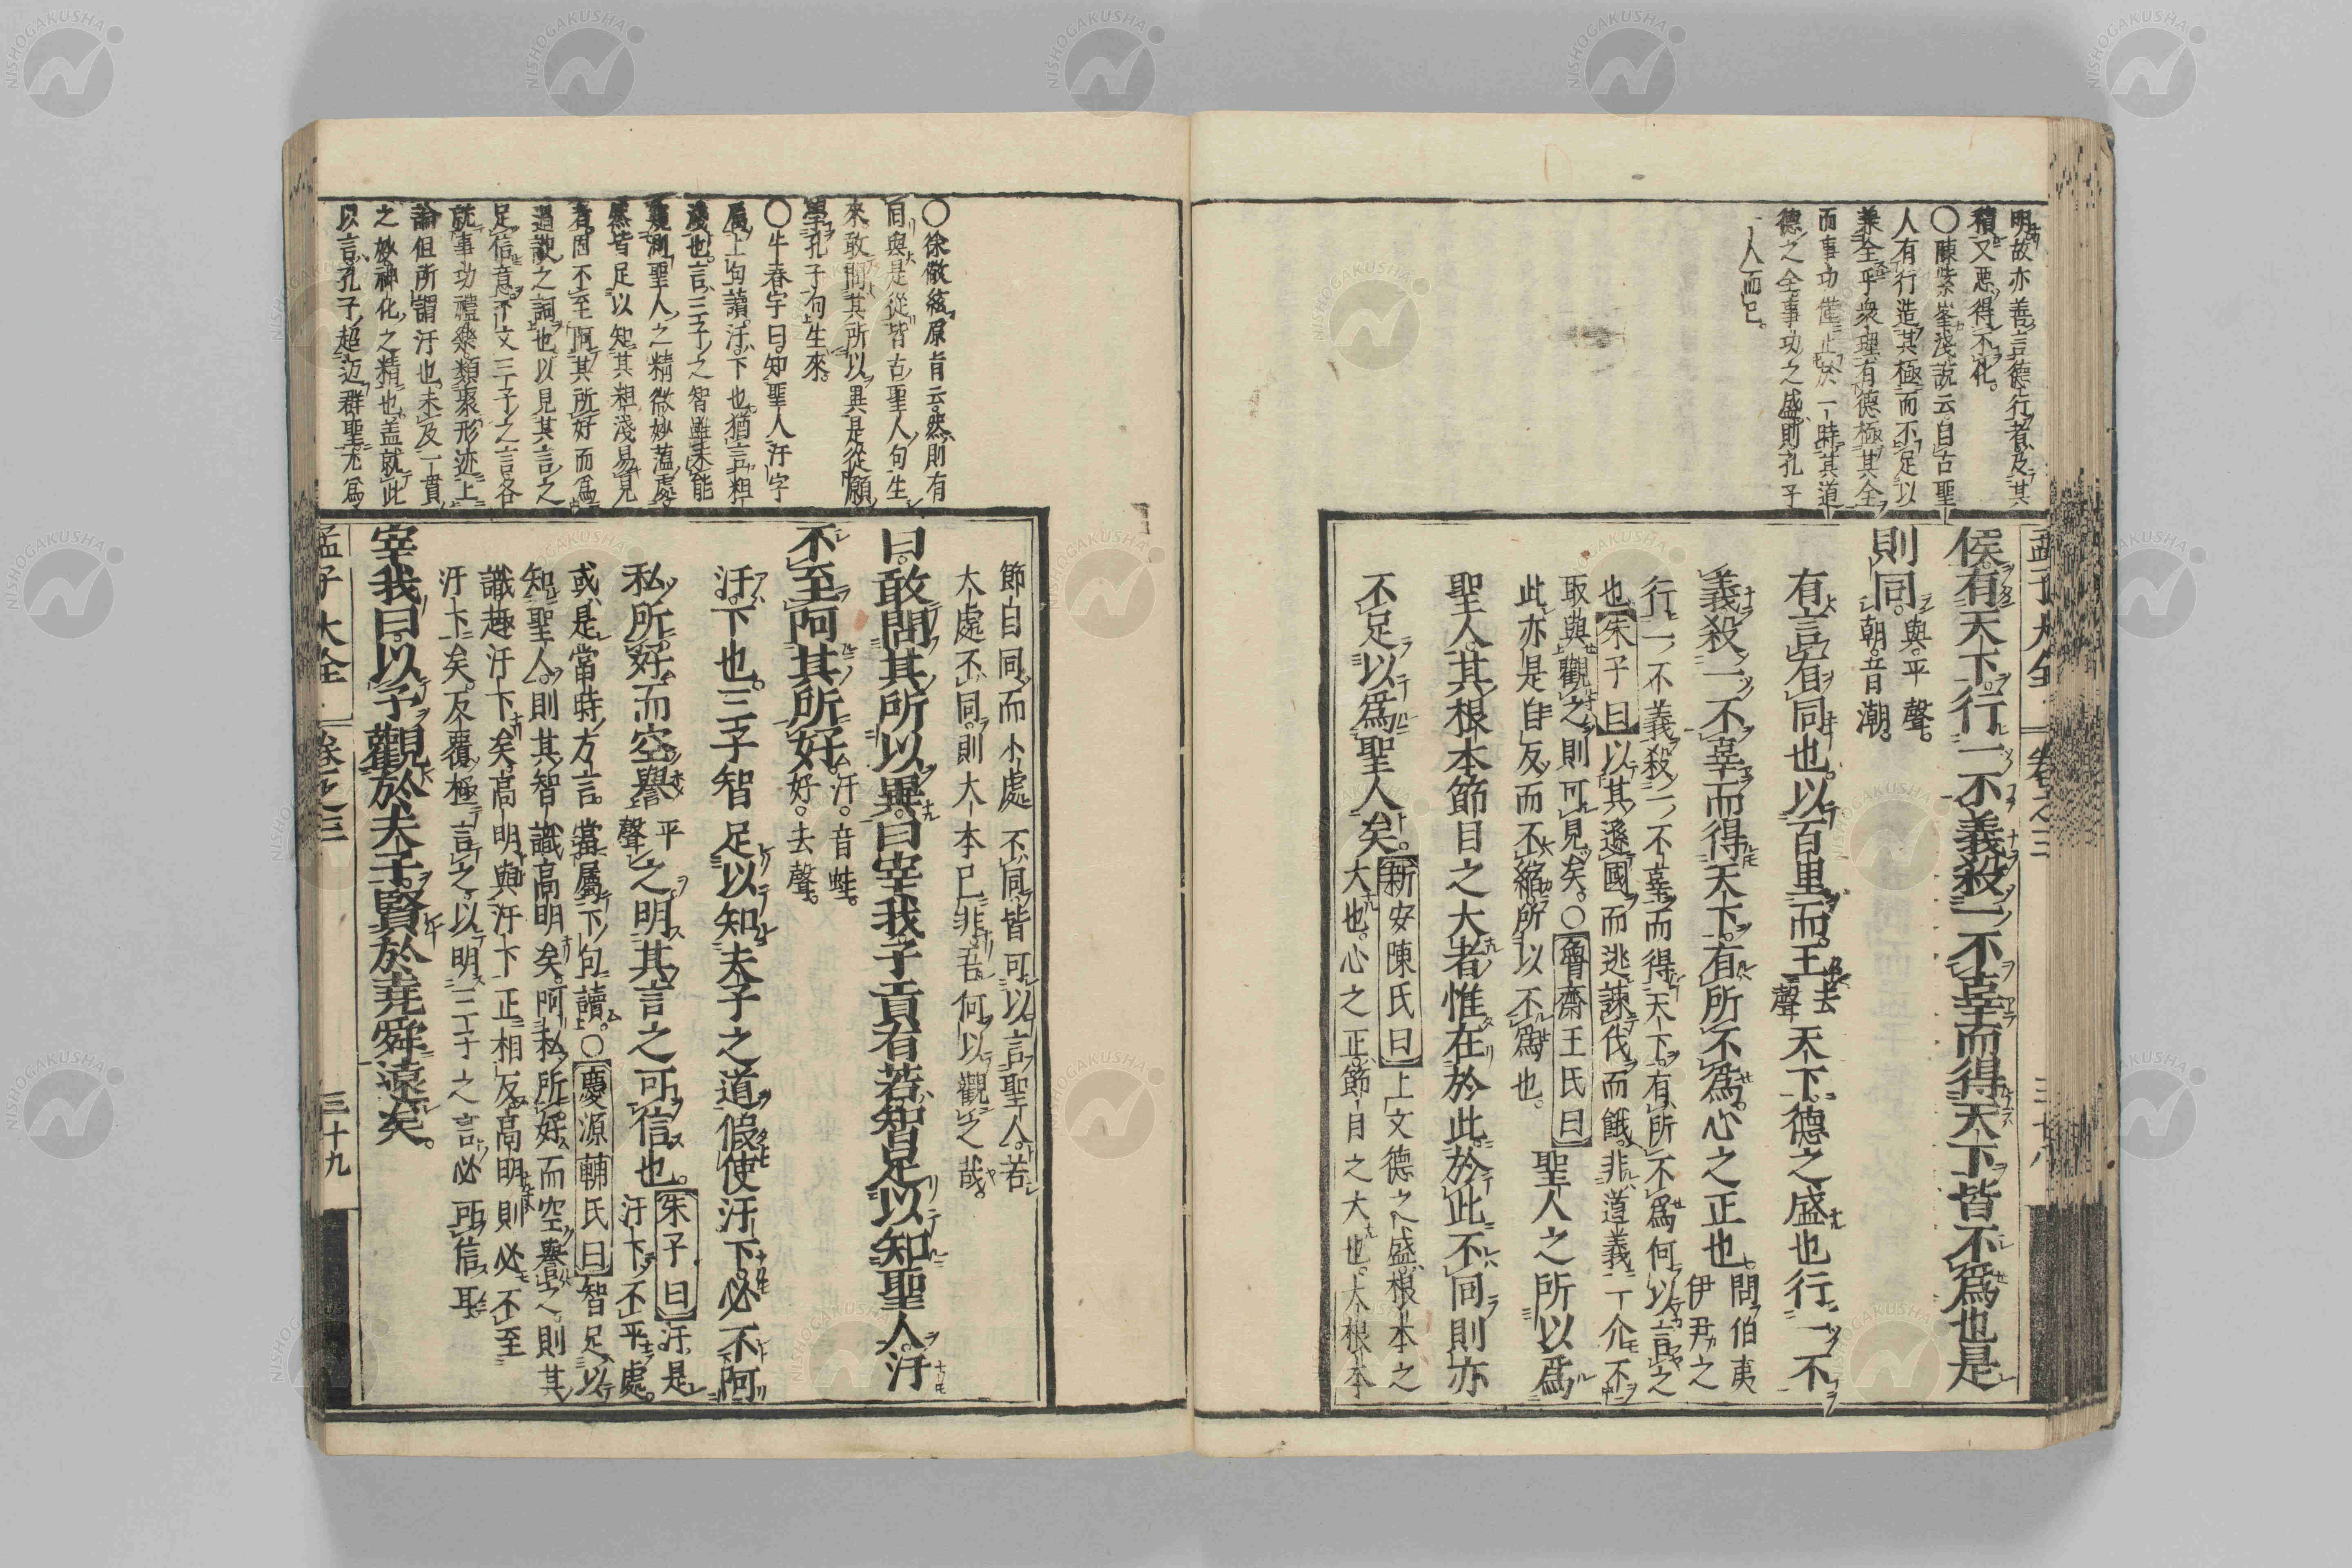 明故亦善言德行者及其
積又惡得不化
〇陳紫峯淺説云自古聖
人有行造其極而不足以
兼全乎衆理有德極其全
而事功僅止於一時其道
德之全事功之盛則孔子
一人而已
孟子大全 卷之三 三十八
侯有天下行一不義殺一不辜而得天下皆不爲也是
則同與平聲
朝音潮
有言有同也以百里而王去聲天下德之盛也行一不
義殺一不辜而得天下有所不爲心之正也問伯夷
伊尹之
行一不義殺一不辜而得天下有所不爲何以言之
也朱子曰以其遜國而逃諫伐而餓非道義一介不
取與觀之則可見矣〇魯齋王氏曰
此亦是自反而不縮所以不爲也聖人之所以爲
聖人其根本節目之大者惟在於此於此不同則亦
不足以爲聖人矣新安陳氏曰上文德之盛根本之
大也心之正節目之大也大根本
〇徐儆弦原旨云然則有
同與是從皆古聖人句生
來敢問其所以異是從願
學孔子句生來
〇牛春宇曰知聖人汙字
屬上句讀汙下也猶言粗
淺也言三子之智雖未能
窺測聖人之精微妙薀處
然皆足以知其粗淺易見
者固不至阿其所好而爲
過譀之詞也以見其言之
足信意下文三子之言各
就事功禮樂類聚形迹上
論但所謂汙也未及一貫
之妙神化之精也盖就此
以言孔子超迈群聖尤爲
節自同而小處不同皆可以言聖人若
大處不同則大本已非吾何以觀之哉
曰敢問其所以異曰宰我子貢有若智足以知聖人汙
不至阿其所好汙音蛙
好去聲
汙下也三子智足以知夫子之道假使汙下必不阿
私所好而空譽平聲之明其言之可信也朱子曰汙是
汙下不平處
或是當時方言當屬下句讀〇慶源輔氏曰智足以
知聖人則其智識高明矣阿私所好而空譽之則其
識趣汙下矣高明與汙下正相反高明則必不至
汙下矣反覆極言之以明三子之言必可信耳
宰我曰以予觀於夫子賢於堯舜遠矣
孟子大全 卷之三 三十九